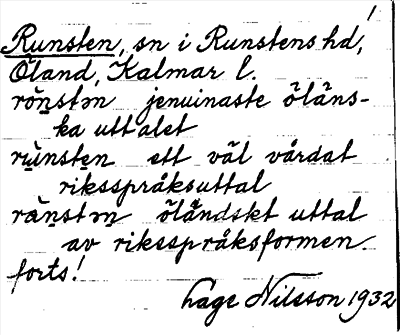 1
Runsten, sn i Runstens hd,
Öland, Kalmar l.
rön̲stən jenuinaste öläns-
ka uttalet
rùnsten ett väl vårdat
riksspråksuttal
rànstən öländskt uttal
av riksspråksformen.
forts!
Lage Nilsson 1932